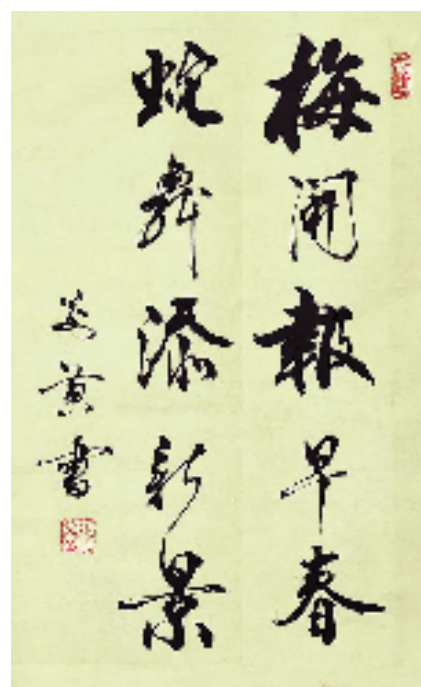 梅開報早春
蛇舞添新景
書